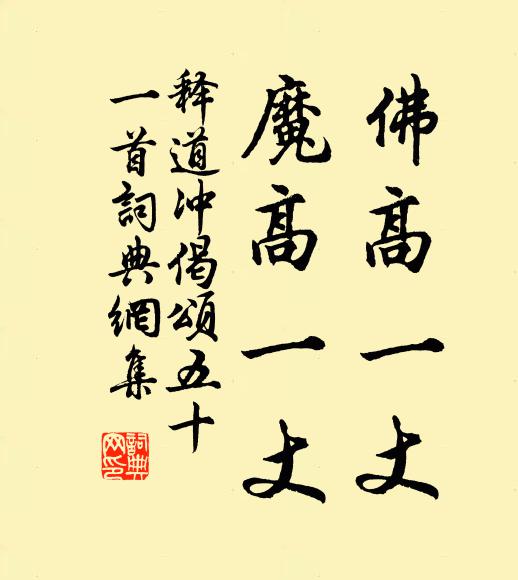 佛高一丈
魔高一丈
释道冲偈頌五十
一首詞典網集
詞典網印